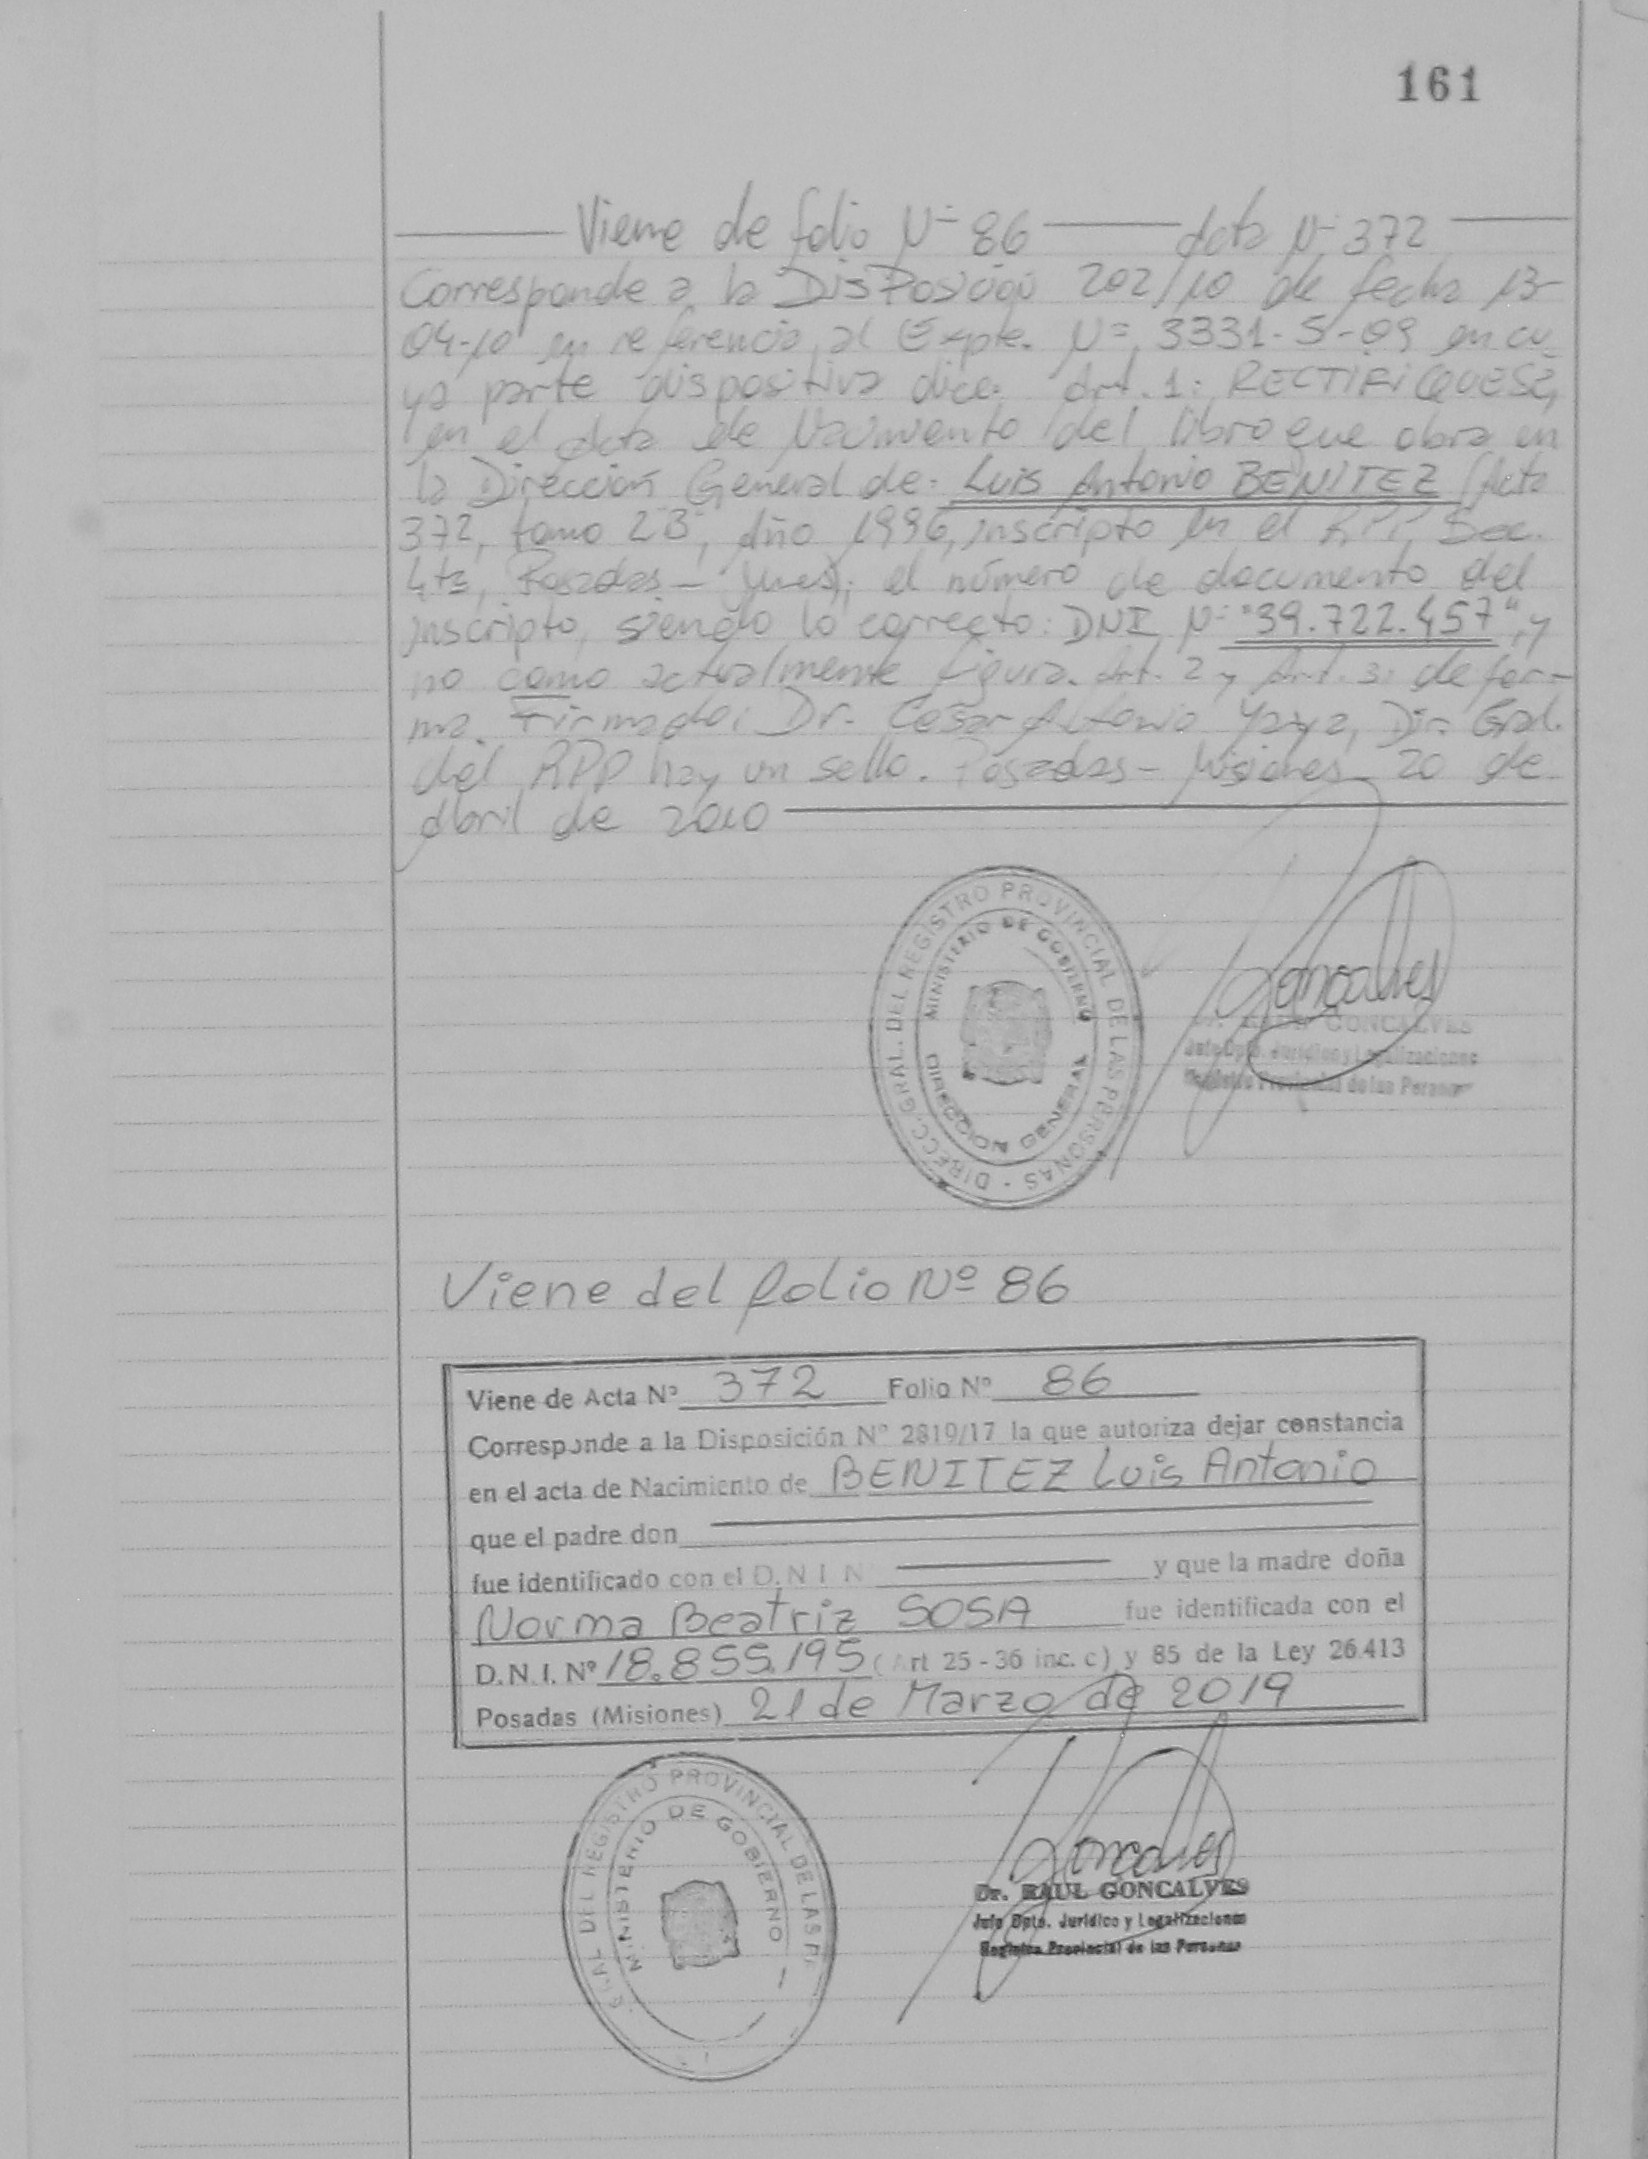 161
Viene de folio Nº 86 Acta Nº 372
Corresponde a la Disposición 202/10 de fecha 13-
04-10 en referencia al Expte. Nº 3331-S-09 en cu
ya parte dispositiva dice: Art. 1: RECTIFIQUESE,
en el Acta de Nacimiento del libro que obra en
la Dirección General de: Luis Antonio BENITEZ (Acta
372, tomo 2"B", Año 1996, inscripto en el RPP, Secc.
4ta, Posadas - Mnes); el número de documento del
inscripto, siendo lo correcto: DNI Nº "39.722.457", y
no como actualmente figura. Art. 2 y Art. 3: de for-
ma. Firmado: Dr. Cesar Antonio Yaya, Dir. Gral.
del RPP hay un sello. Posadas - Misiones 20 de
Abril de 2010
DIRECC. GRAL. DEL REGISTRO PROVINCIAL DE LAS PERSONAS -
MINISTERIO DE GOBIERNO
DIRECCION GENERAL
Goncalves
Dr. RAUL GONCALVES
Jefe Dpto. Jurídico y Legalizaciones
Registro Provincial de las Personas
Viene del folio Nº 86
Viene de Acta Nº 372 Folio Nº 86
Corresponde a la Disposición Nº 2819/17 la que autoriza dejar constancia
en el acta de Nacimiento de BENITEZ Luis Antonio
que el padre don
fue identificado con el D.N.I. N y que la madre doña
Norma Beatriz SOSA fue identificada con el
D.N.I. Nº 18.855.195 (Art 25 - 36 inc. c) y 85 de la Ley 26.413
Posadas (Misiones) 21 de Marzo de 2019
GRAL DEL REGISTRO PROVINCIAL DE LAS P
MINISTERIO DE GOBIERNO
Goncalves
Dr. RAUL GONCALVES
Jefe Dpto. Jurídico y Legalizaciones
Registro Provincial de las Personas